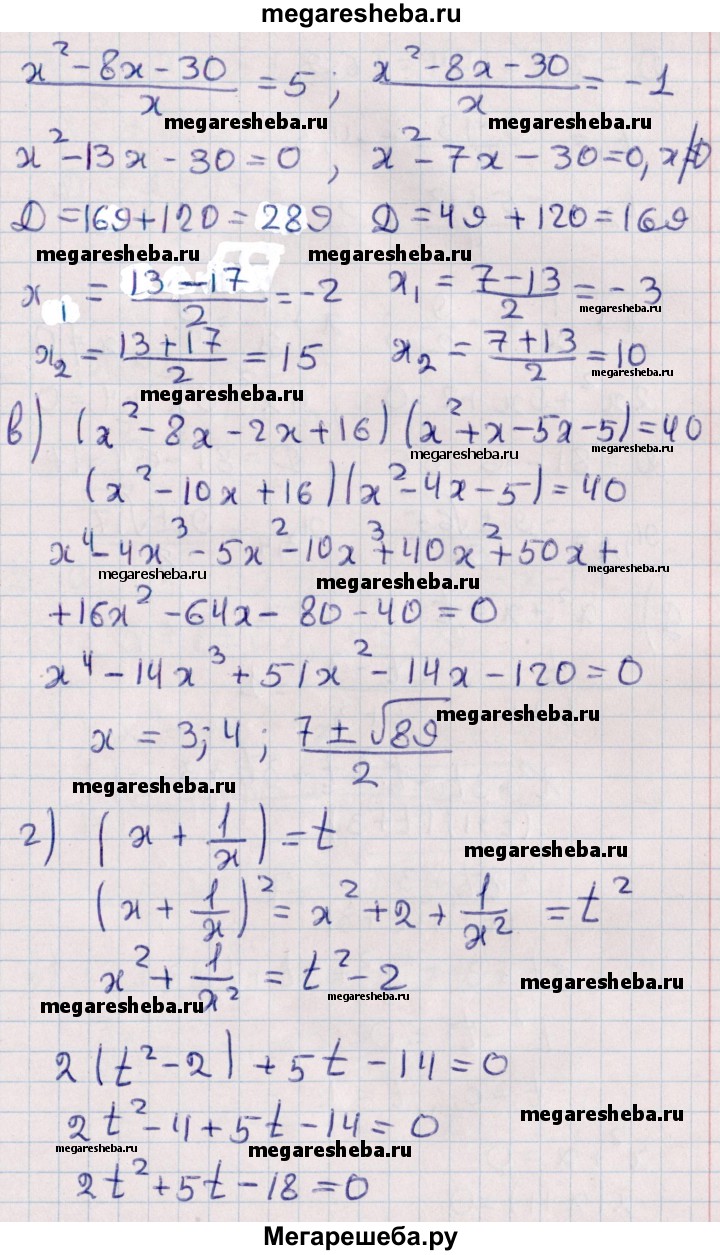 megaresheba.ru
x² - 8x - 30 / x = 5 ; x² - 8x - 30 / x = -1
megaresheba.ru megaresheba.ru
x² - 13x - 30 = 0 , x² - 7x - 30 = 0, x ≠ 0
D = 169 + 120 = 289 D = 49 + 120 = 169
megaresheba.ru megaresheba.ru
x₁ = 13 - 17 / 2 = -2 x₁ = 7 - 13 / 2 = -3
megaresheba.ru
x₂ = 13 + 17 / 2 = 15 x₂ = 7 + 13 / 2 = 10
megaresheba.ru megaresheba.ru
в) (x² - 8x - 2x + 16)(x² + x - 5x - 5) = 40
megaresheba.ru
(x² - 10x + 16)(x² - 4x - 5) = 40
x⁴ - 4x³ - 5x² - 10x³ + 40x² + 50x +
megaresheba.ru megaresheba.ru megaresheba.ru
+ 16x² - 64x - 80 - 40 = 0
x⁴ - 14x³ + 51x² - 14x - 120 = 0
x = 3; 4 ; 7 ± √89 / 2
megaresheba.ru
megaresheba.ru
г) (x + 1/x) = t
megaresheba.ru
(x + 1/x)² = x² + 2 + 1/x² = t²
x² + 1/x² = t² - 2
megaresheba.ru megaresheba.ru megaresheba.ru
2(t² - 2) + 5t - 14 = 0
2t² - 4 + 5t - 14 = 0
megaresheba.ru megaresheba.ru megaresheba.ru
2t² + 5t - 18 = 0
Мегарешеба.ру